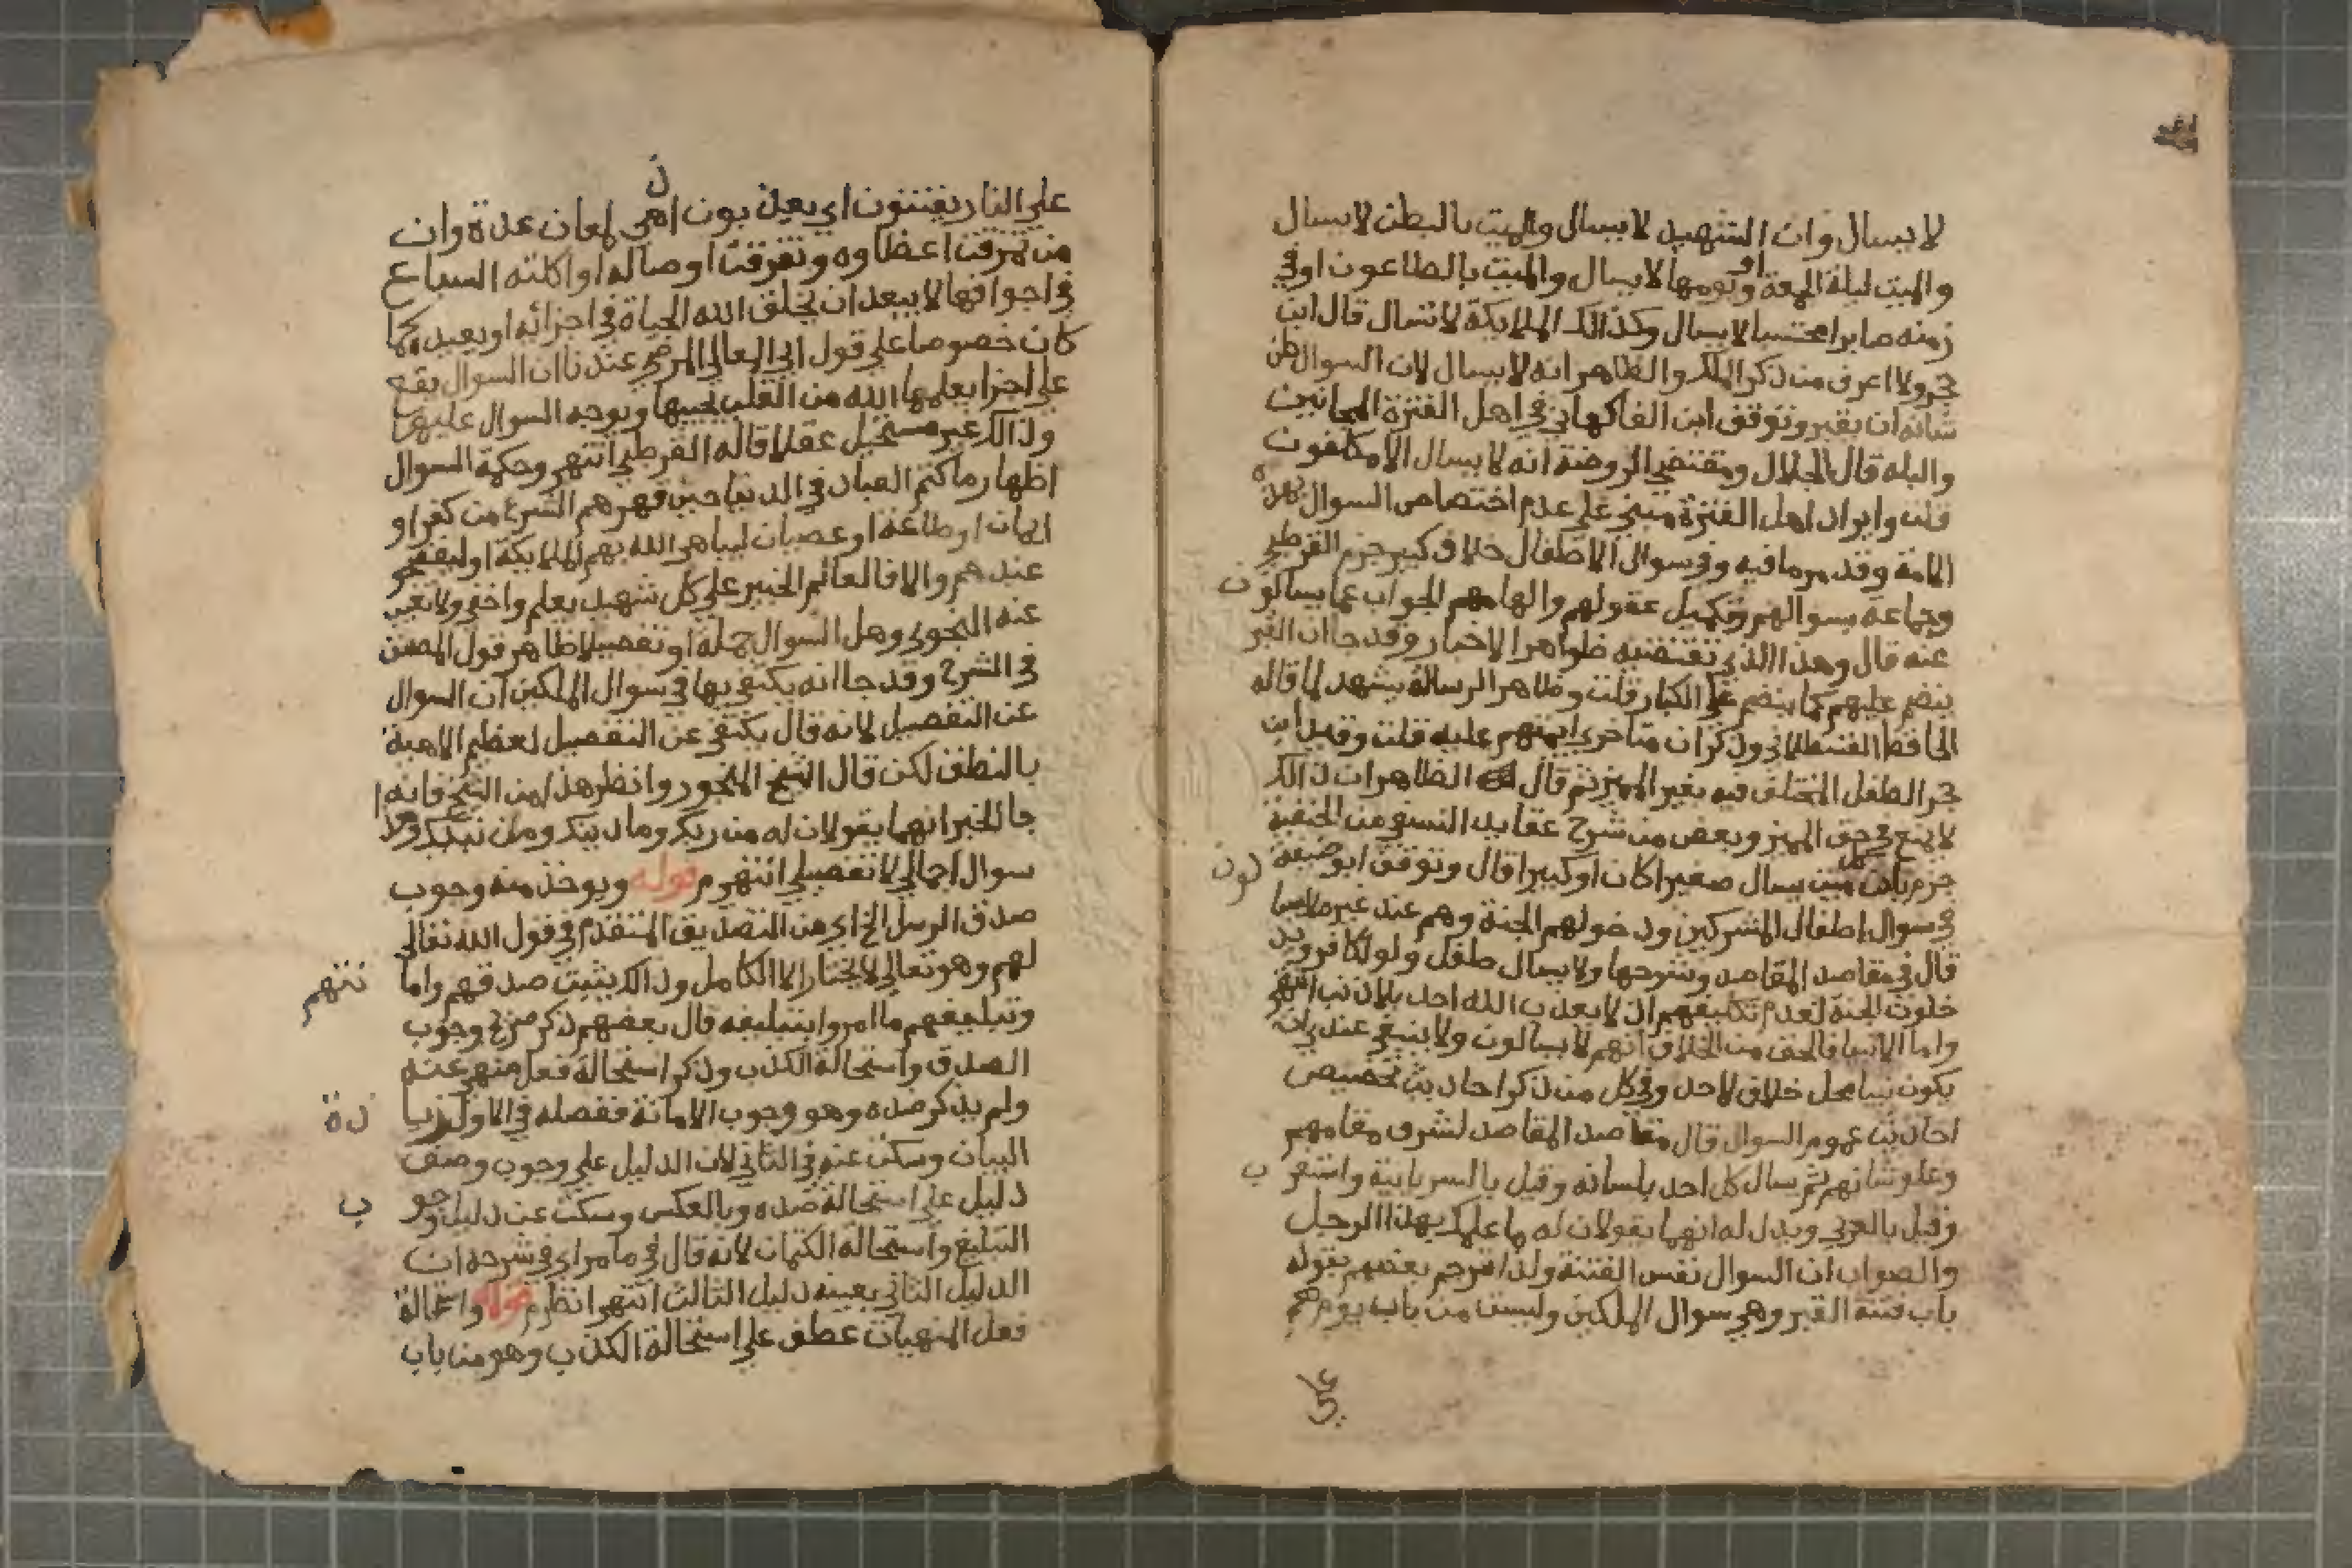 لا يسال وان الشهيد لا يسال والميت بالبطن لا يسال
والميت ليلة الجمعة او يومها لا يسال والميت بالطاعون او في
زمنه صابرا محتسبا لا يسال وكذالك الملايكة لا تسال قال ابن
حجر ولا اعرف من ذكر الملك والظاهر انه لا يسال لان السوال لمن
شانه ان يقبر وتوقف ابن الفاكهاني في اهل الفترة المجانين
والبله قال الجلال ومقتضى الروضة انه لا يسال الا مكلفون
قلت وايراد اهل الفترة مبني على عدم اختصاص السوال بهذه
الامة وقد مر ما فيه وفي سوال الاطفال خلاف كبير جزم القرطبي
وجماعة بسوالهم وتكميل عقولهم والهامهم الجواب عما يسالون
عنه قال وهذا الذي تقتضيه ظواهر الاخبار وقد جا ان القبر
ينضم عليهم كما ينضم على الكبار قلت وظاهر الرسالة يشهد لما قاله
الحافظ القسطلاني وذكر ان متاخري ايمتهم عليه قلت وقيد ابن
حجر الطفل المختلف فيه بغير المميز ثم قال الظاهر ان ذالك
لا يمنع في حق المميز وبعض من شرح عقايد النسفي من الحنفية
جزم بان كل ميت يسال صغيرا كان او كبيرا قال وتوقف ابو حنيفة
في سوال اطفال المشركين ودخولهم الجنة وهم عند غيره لا يسا لون
قال في مقاصد المقاصد وشرحها ولا يسال طفل ولو لكافر ويد
خلون الجنة لعدم تكليفهم اذ لا يعذب الله احد بلا ذنب انتهى
واما الانبيا فالحق من الخلاف انهم لا يسالون ولا ينبغي عندي ان
يكون نبيا محل خلاف لاحد وفي كل من ذكر احاديث تخصيص
احاديث عموم السوال قال مقاصد المقاصد لشرف مقامهم
وعلو شانهم ثم يسال كل احد بلسانه وقيل بالسريانية واستغر ب
وقيل بالعربي ويدل له انهما يقولان له ما علمك بهذا الرجل
والصواب ان السوال نفس الفتنة ولذا ترجم بعضهم بقوله
باب فتنة القبر وهي سوال الملكين وليست من باب يوم هم
على
على النار يفتنون اي يعذبون اهي لمعان عدة وان
من تمزقت اعضاوه وتفرقت اوصاله او اكلته السباع
في اجوافها لا يبعد ان يخلق الله الحياة في اجزائه او يعيد كما
كان خصوصا على قول ابي المعالي المرضي عندنا ان السوال يقع
على اجزا يعلمها الله من القلب يحييها ويوجه السوال عليها
وذالك غير مستحيل عقلا قاله القرطبي انتهى وحكمة السوال
اظهار ما كتم العباد في الدنيا حين قهرهم الشرع من كفر او
ايمان او طاعة او عصيان ليباهي الله بهم الملايكة او ليفضحو
عندهم والا فالعالم الخبير على كل شهيد يعلم واخفى ولا تغيب
عنه النجوى وهل السوال جملة او تفصيلا ظاهر قول المصن
في الشرح وقد جا انه يكتفي بها في سوال الملكين ان السوال
عن التفصيل لانه قال يكتفي عن التفصيل لعظيم الاهبة
بالنطق لكن قال الشيخ المنجور وانظر هذا من الشيخ فانه
جا الخبر انهما يقولان له من ربك وما دينك ومن نبيك وهو
سوال اجمالي لا تفصيلي انتهى م قوله ويوخذ منه وجوب
صدق الرسل الخ اي من التصديق المتقدم في قول الله تعالى
لهم وهو تعالى لا يختار الا الكامل وذالك يثبت صدقهم واما نتهم
وتبليغهم ما امروا بتبليغه قال بعضهم ذكر صريح وجوب
الصدق واستحالة الكذب وذكر استحالة فعل منهي عنه
ولم يذكر ضده وهو وجوب الامانة ففصله في الاول لزيا دة
البيان وسكت عنه في الثاني لان الدليل على وجوب وصف
دليل على استحالة ضده وبالعكس وسكت عن دليل وجو ب
التبليغ واستحالة الكتمان لانه قال في ما مر اي في شرحه ان
الدليل الثاني بعينه دليل الثالث انتهى انظر م قوله واستحالة
فعل المنهيات عطف على استحالة الكذب وهو من باب